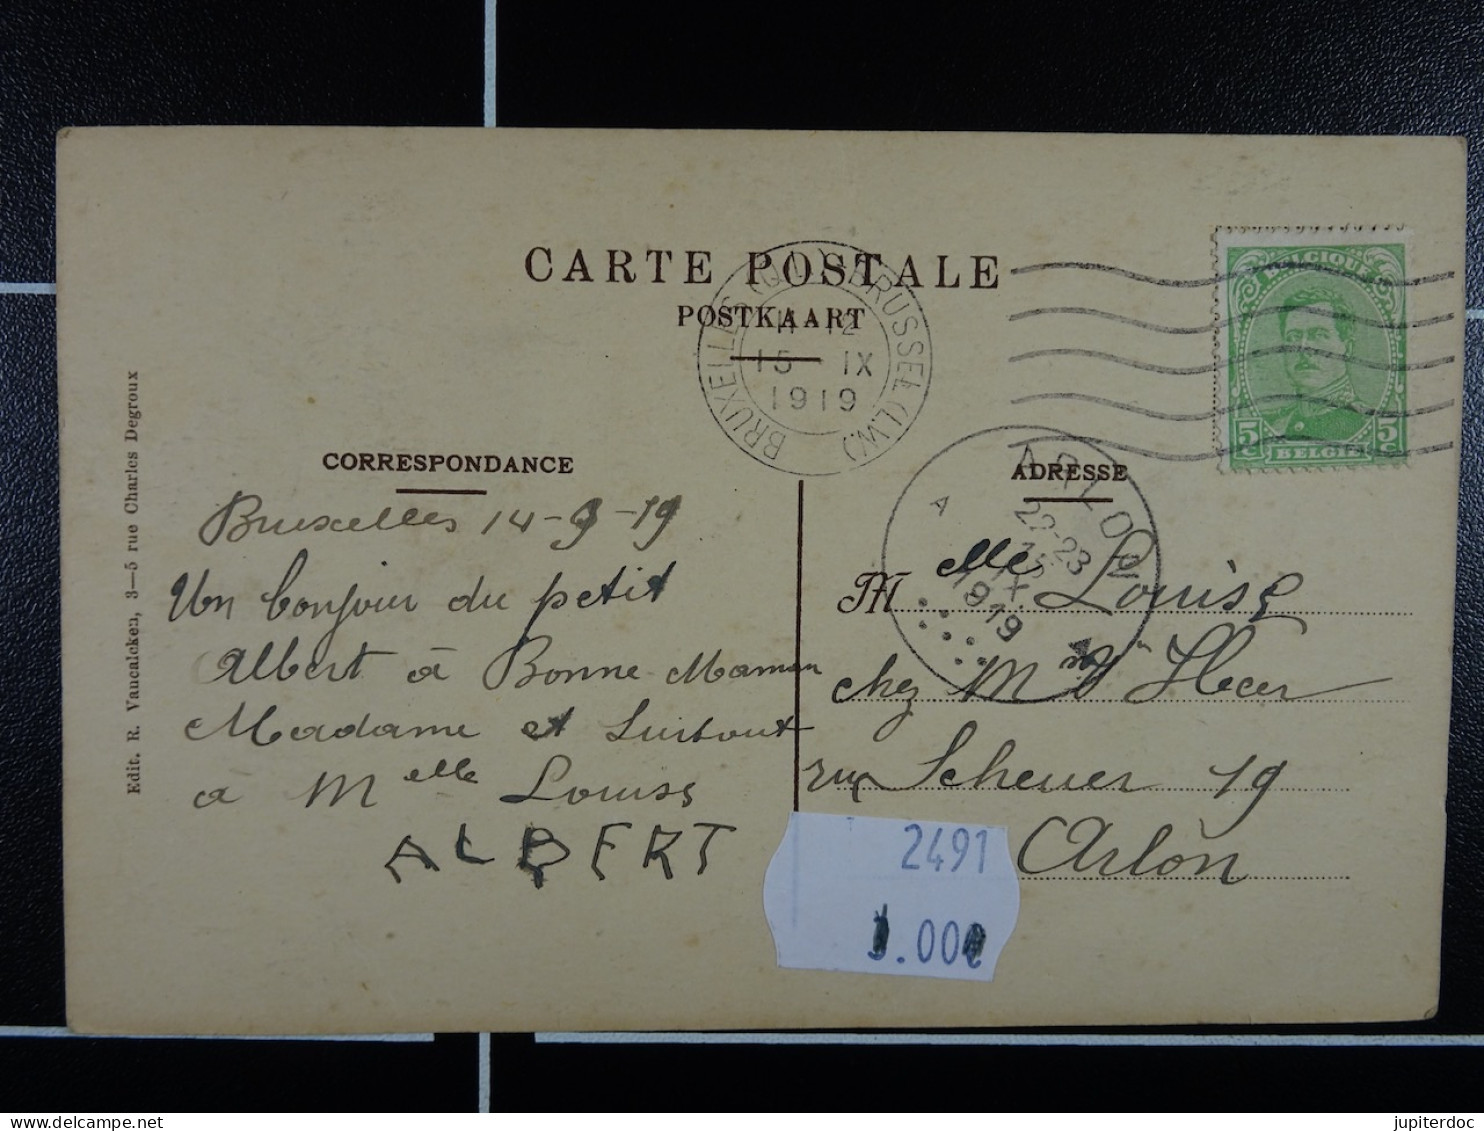 CARTE POSTALE
POSTKAART
BRUXELLES (Q.L.) BRUSSEL (L.W.)
11-12
15 - IX
1919
BELGIQUE
5c 5c
BELGIË
CORRESPONDANCE
Bruxelles 14-9-19
Un bonjour du petit
Albert à Bonne Maman
Madame et Surtout
a Melle Louise
ALBERT
Edit. R. Vancalcken, 3—5 rue Charles Degroux
ADRESSE
ARLON
A
22-23
15
IX
1919
Melle Louise
chez Mme Vve Hecer
rue Scheuer 19
Arlon
2491
.00€
www.delcampe.net
jupiterdoc